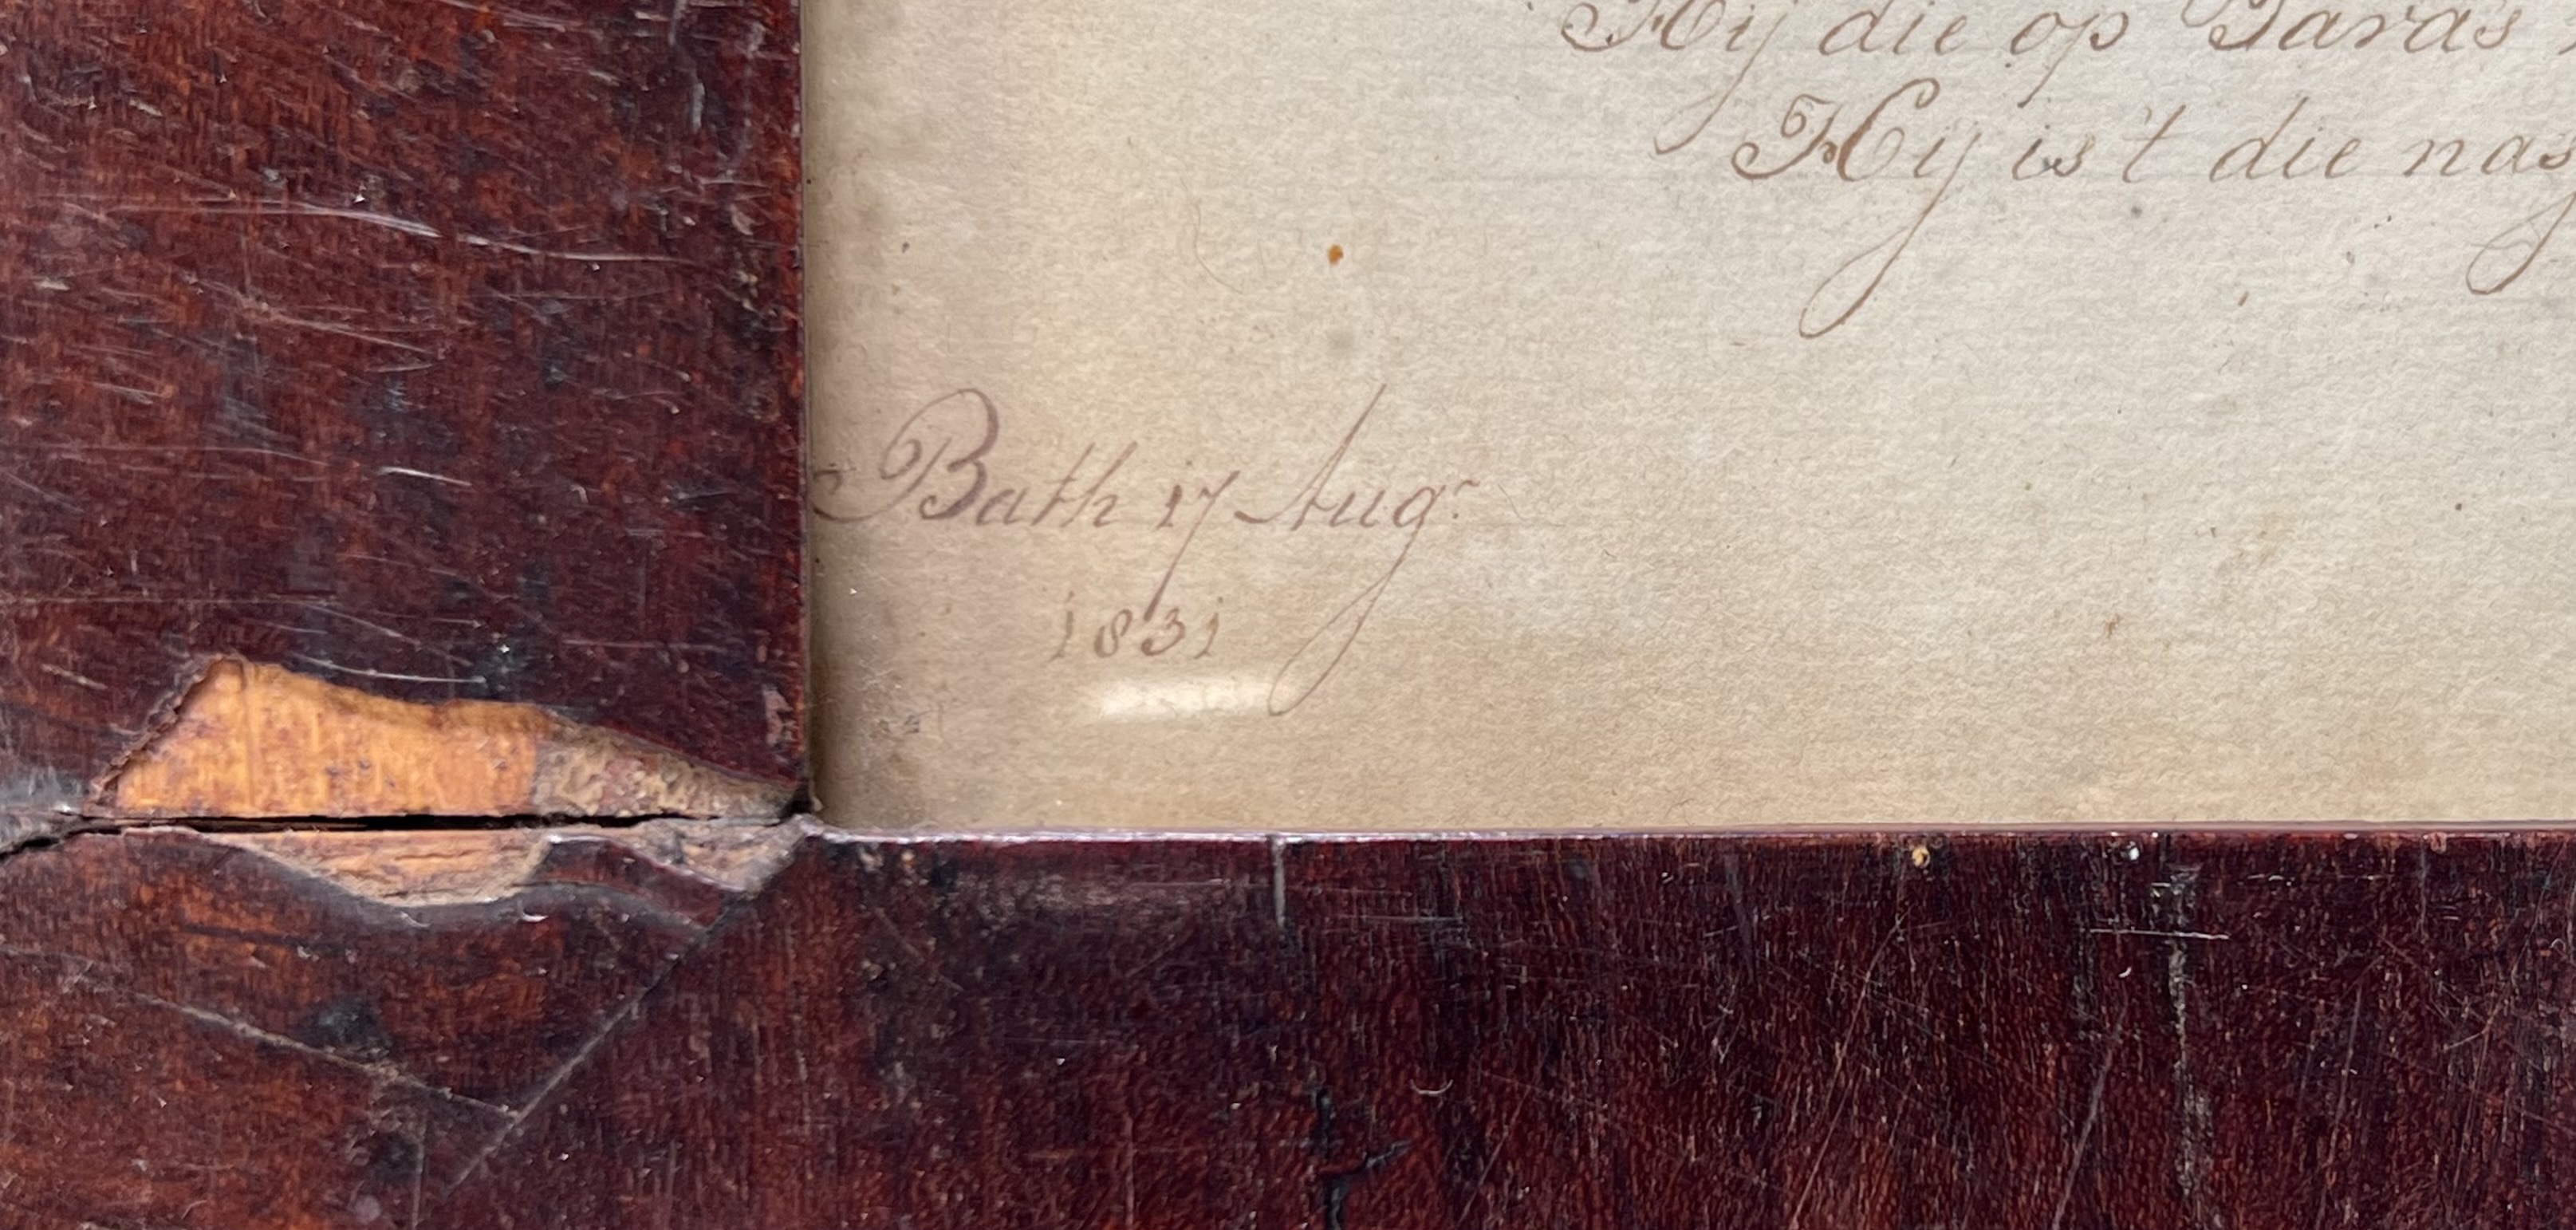 Hij die op Tara's
Hij is't die nag
Bath 17 Augr
1831